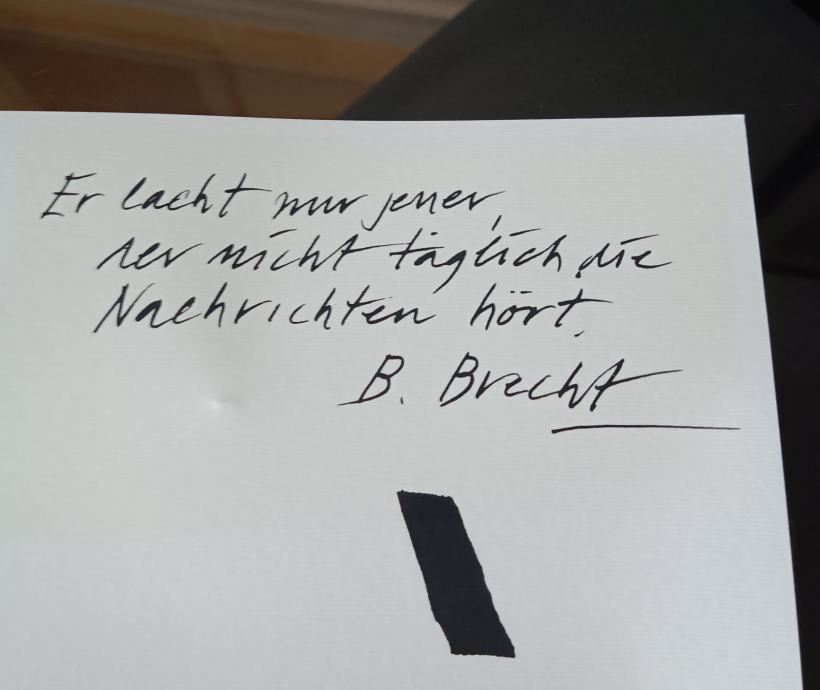 Er lacht nur jener,
der nicht täglich die
Nachrichten hört.
B. Brecht